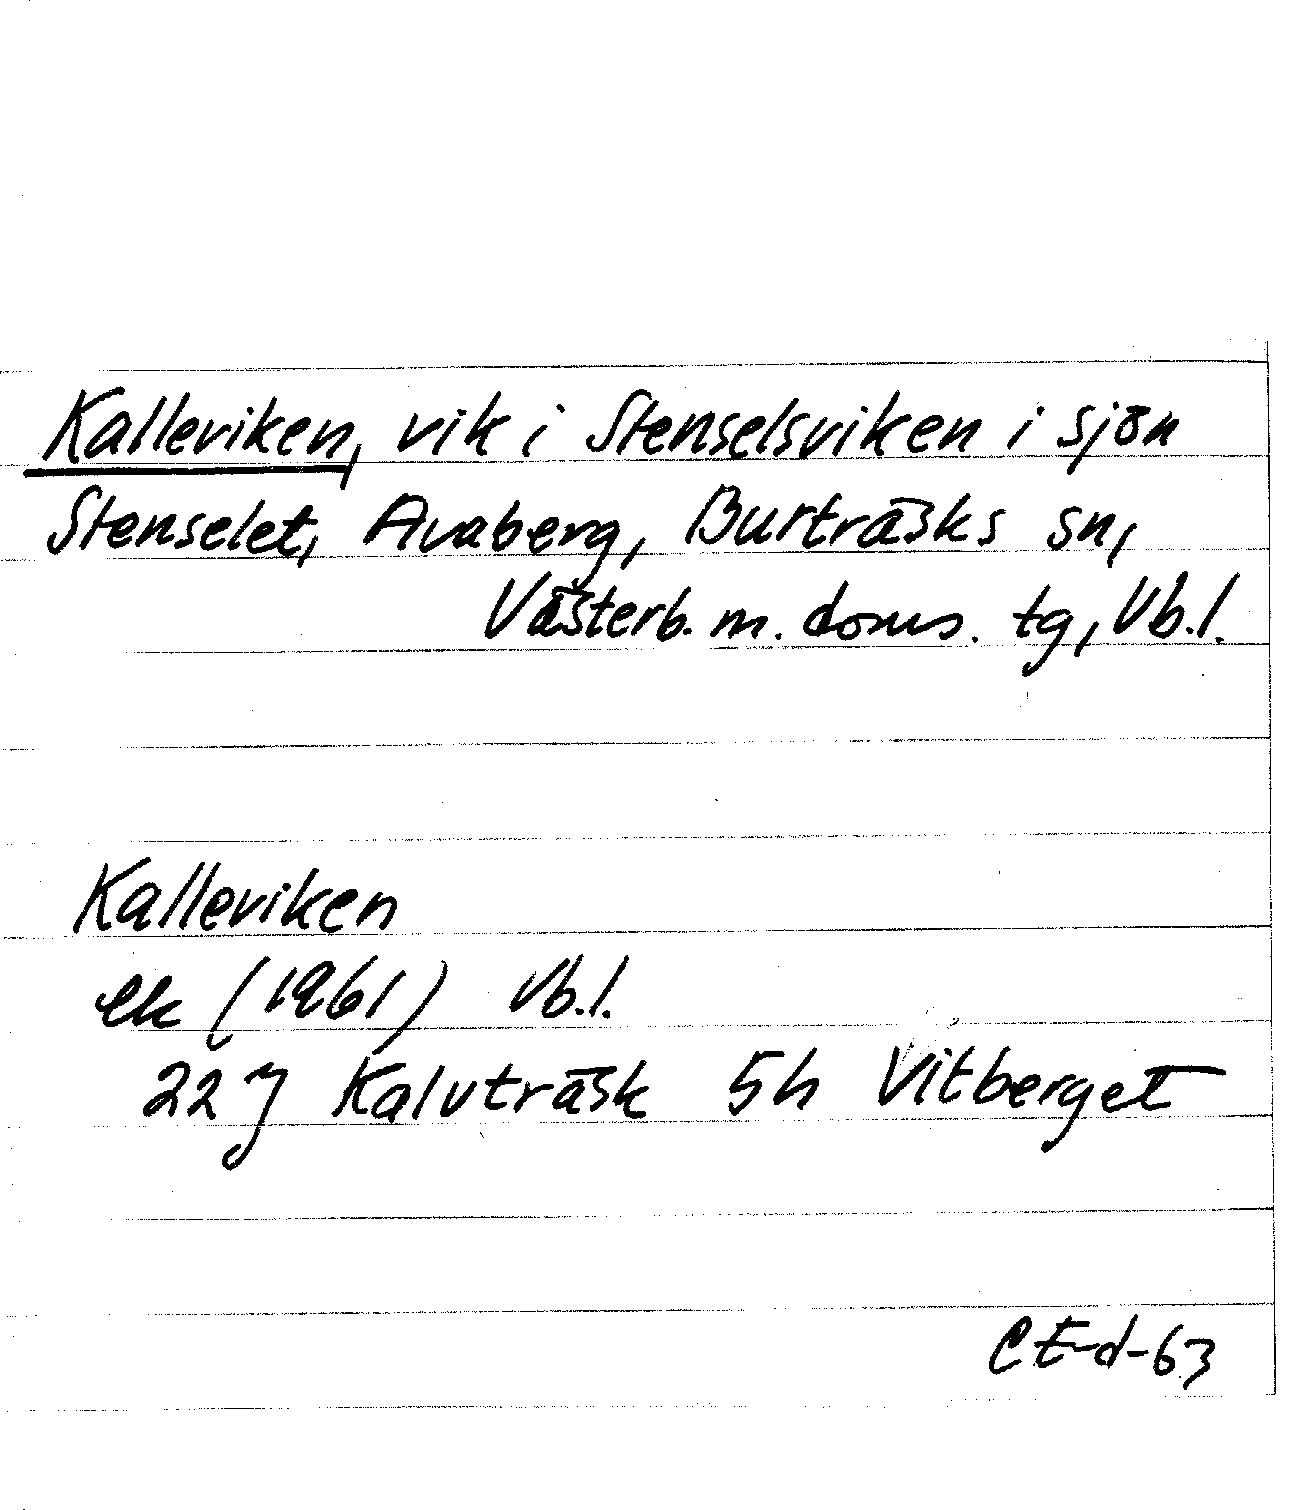 Kalleviken, vik i Stenselsviken i sjön
Stenselet, Avaberg, Burträsks sn,
Västerb. m. doms. tg, Vb.l.
Kalleviken
ek (1961) Vb.l.
22 J Kalvträsk 5h Vitberget
CE-d-63